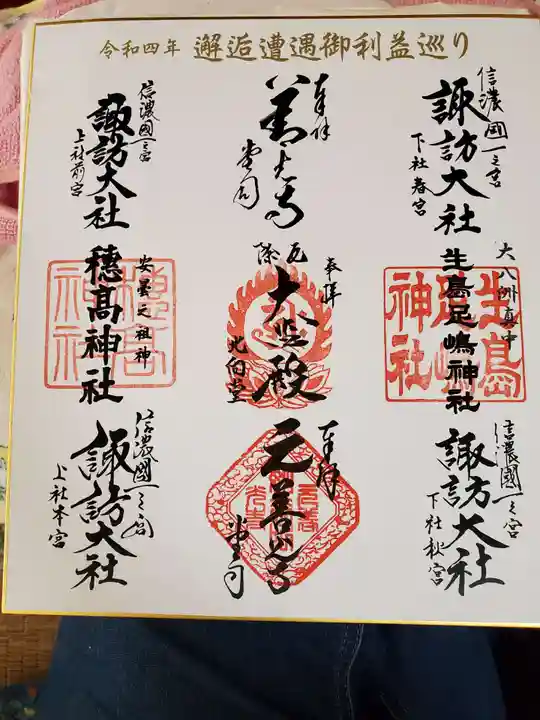 令和四年 邂逅遭遇御利益巡り
信濃國一之宮
諏訪大社
下社春宮
奉拝
善光寺
堂司
信濃國一之宮
諏訪大社
上社前宮
大八洲真中
生島足嶋神社
生島足嶋神社
奉拝
大悲殿
厄除
北向堂
安曇之祖神
穂髙神社
穂高神社
信濃國一之宮
諏訪大社
下社秋宮
奉拝
元善光寺
堂司
信濃國一之宮
諏訪大社
上社本宮